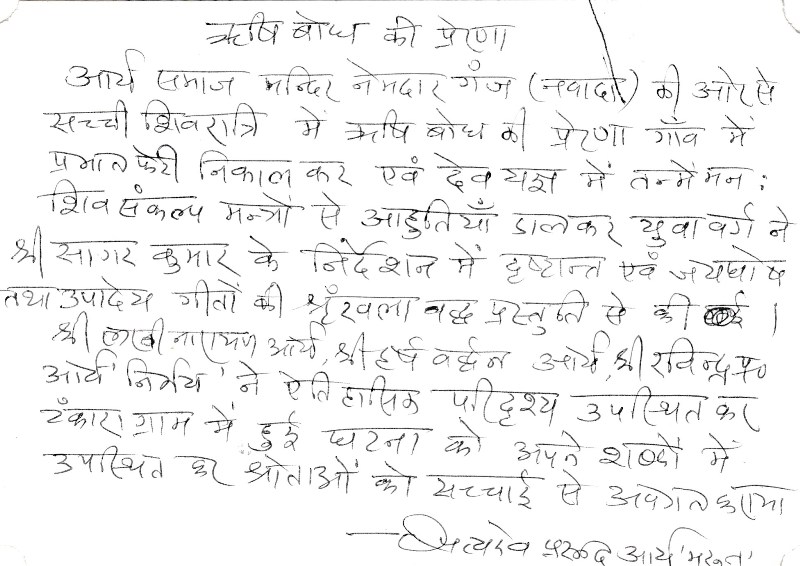 ऋषि बोध की प्रेरणा
आर्य समाज मन्दिर नेमदार गंज (नवादा) की ओर से
सच्ची शिवरात्रि में ऋषि बोध की प्रेरणा गाँव में
प्रभात फेरी निकाल कर एवं देव यज्ञ में तन्मेमन:
शिव संकल्प मन्त्रों से आहुतियाँ डालकर युवा वर्ग ने
श्री सागर कुमार के निर्देशन में दृष्टान्त एवं जयघोष
तथा उपादेय गीतों की श्रृंखला बद्ध प्रस्तुति से की ।
श्री नारायण आर्य, श्री हर्ष वर्द्धन आर्य, श्री रविन्द्र प्र०
आर्य 'निर्भय' ने ऐतिहासिक परिदृश्य उपस्थित कर
टंकारा ग्राम में हुई घटना को अपने शब्दों में
उपस्थित कर श्रोताओं को सच्चाई से अवगत कराया
— सत्यदेव प्रसाद आर्य 'मरुत'